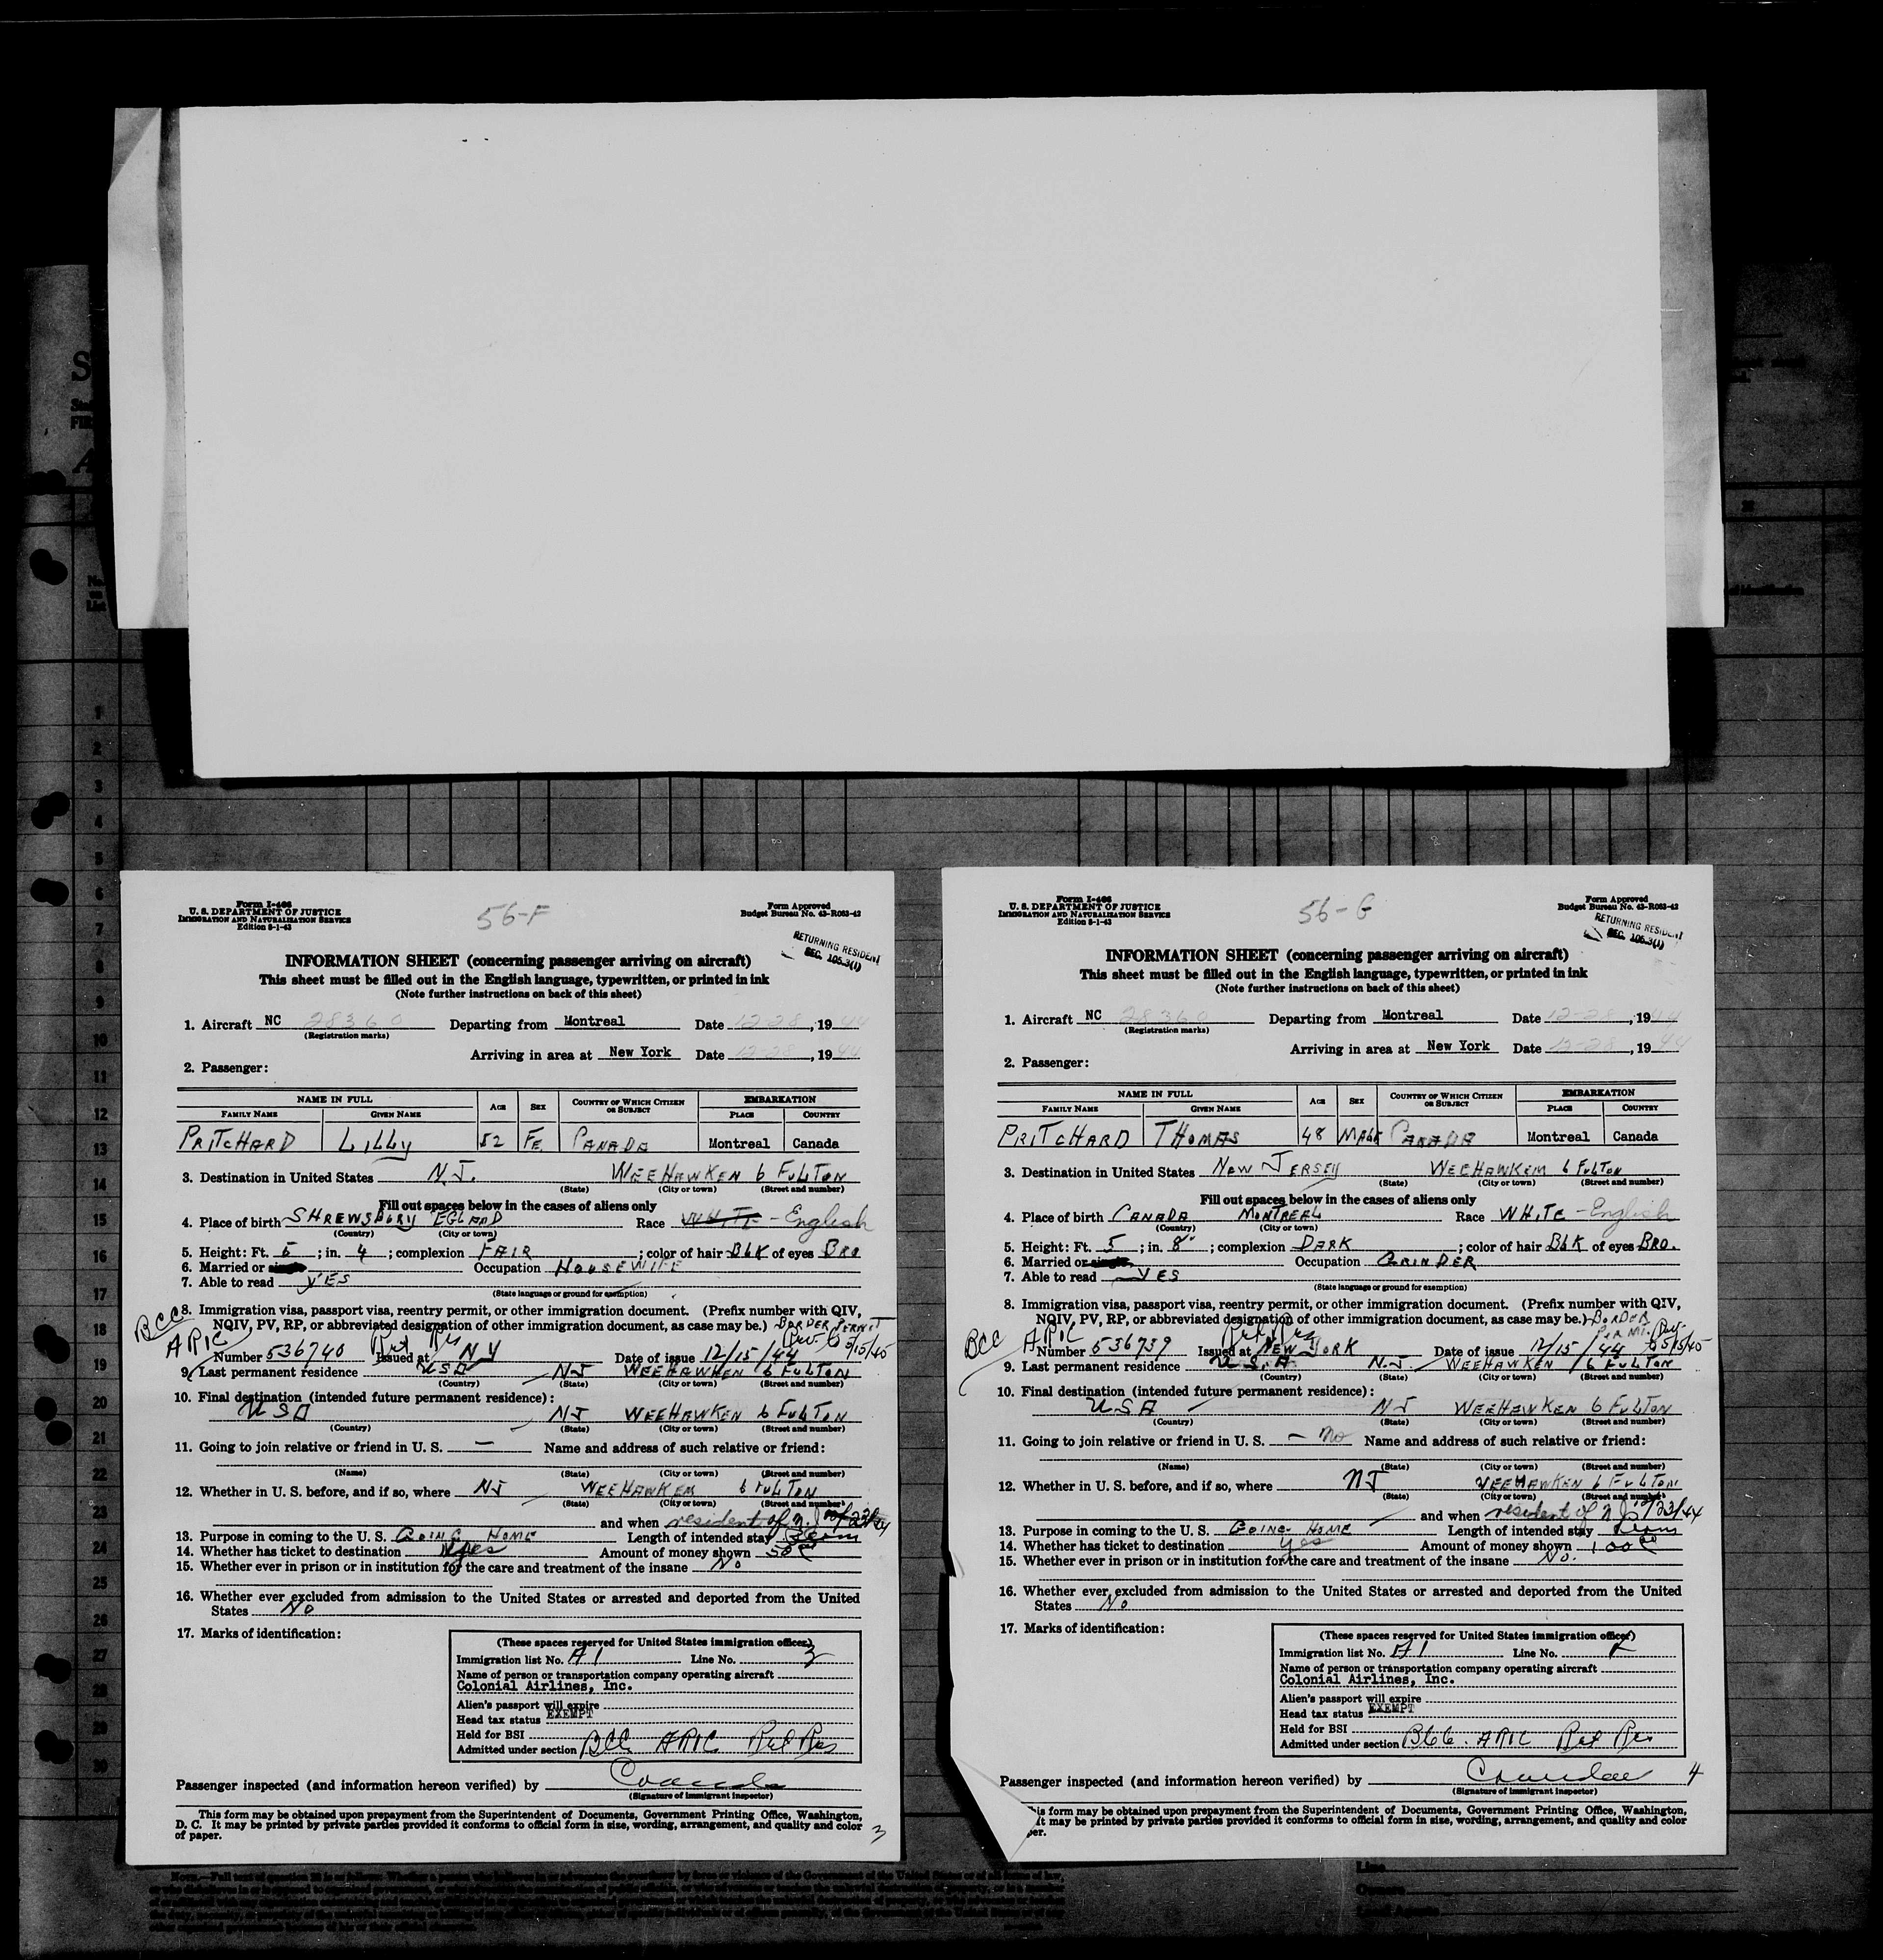 Form I-466
U. S. DEPARTMENT OF JUSTICE
IMMIGRATION AND NATURALIZATION SERVICE
Edition 8-1-43
56-F
Form Approved
Budget Bureau No. 43-R063-42
RETURNING RESIDENT
SEC. 105.3(1)
INFORMATION SHEET (concerning passenger arriving on aircraft)
This sheet must be filled out in the English language, typewritten, or printed in ink
(Note further instructions on back of this sheet)
1. Aircraft NC 28360 Departing from Montreal Date 12-28, 1944
(Registration marks)
Arriving in area at New York Date 12-28, 1944
2. Passenger:
NAME IN FULL AGE SEX COUNTRY OF WHICH CITIZEN OR SUBJECT EMBARKATION
FAMILY NAME GIVEN NAME PLACE COUNTRY
PRITCHARD LILLY 52 FE. CANADA Montreal Canada
3. Destination in United States N.J. WEEHAWKEN 6 FULTON
(State) (City or town) (Street and number)
Fill out spaces below in the cases of aliens only
4. Place of birth SHREWSBURY EGLAND Race WHITE - English
(Country) (City or town)
5. Height: Ft. 5; in. 4; complexion FAIR; color of hair BLK of eyes BRO
6. Married or single Occupation HOUSEWIFE
7. Able to read YES
(State language or ground for exemption)
8. Immigration visa, passport visa, reentry permit, or other immigration document. (Prefix number with QIV,
NQIV, PV, RP, or abbreviated designation of other immigration document, as case may be.) BORDER PERMIT
BCC
ARIC
Number 536740 Issued at NY Date of issue 12/15/44
9. Last permanent residence USA NJ WEEHAWKEN 6 FULTON
(Country) (State) (City or town) (Street and number)
10. Final destination (intended future permanent residence):
USA NJ WEEHAWKEN 6 FULTON
(Country) (State) (City or town) (Street and number)
11. Going to join relative or friend in U. S. — Name and address of such relative or friend:
(Name) (State) (City or town) (Street and number)
12. Whether in U. S. before, and if so, where NJ WEEHAWKEM 6 FULTON
(State) (City or town) (Street and number)
and when resident of N.J.
13. Purpose in coming to the U. S. GOING HOME Length of intended stay
14. Whether has ticket to destination yes Amount of money shown
15. Whether ever in prison or in institution for the care and treatment of the insane No
16. Whether ever excluded from admission to the United States or arrested and deported from the United
States No
17. Marks of identification:
(These spaces reserved for United States immigration officer)
Immigration list No. A1 Line No. 3
Name of person or transportation company operating aircraft
Colonial Airlines, Inc.
Alien's passport will expire
Head tax status EXEMPT
Held for BSI
Admitted under section BCC ARIC Ret Res
Passenger inspected (and information hereon verified) by
(Signature of immigrant inspector)
This form may be obtained upon prepayment from the Superintendent of Documents, Government Printing Office, Washington,
D. C. It may be printed by private parties provided it conforms to official form in size, wording, arrangement, and quality and color
of paper.
3
Form I-466
U. S. DEPARTMENT OF JUSTICE
IMMIGRATION AND NATURALIZATION SERVICE
Edition 8-1-43
56-G
Form Approved
Budget Bureau No. 43-R063-42
RETURNING RESIDENT
SEC. 105.3(1)
INFORMATION SHEET (concerning passenger arriving on aircraft)
This sheet must be filled out in the English language, typewritten, or printed in ink
(Note further instructions on back of this sheet)
1. Aircraft NC 28360 Departing from Montreal Date 12-28, 1944
(Registration marks)
Arriving in area at New York Date 12-28, 1944
2. Passenger:
NAME IN FULL AGE SEX COUNTRY OF WHICH CITIZEN OR SUBJECT EMBARKATION
FAMILY NAME GIVEN NAME PLACE COUNTRY
PRITCHARD THOMAS 48 MALE CANADA Montreal Canada
3. Destination in United States NEW JERSEY WEEHAWKEM 6 FULTON
(State) (City or town) (Street and number)
Fill out spaces below in the cases of aliens only
4. Place of birth CANADA MONTREAL Race WHITE - English
(Country) (City or town)
5. Height: Ft. 5; in. 8"; complexion DARK; color of hair BLK of eyes BRO.
6. Married or single Occupation GRINDER
7. Able to read YES
(State language or ground for exemption)
8. Immigration visa, passport visa, reentry permit, or other immigration document. (Prefix number with QIV,
NQIV, PV, RP, or abbreviated designation of other immigration document, as case may be.) BORDER
BCC ARIC
Number 536739 Issued at NEW YORK Date of issue 12/15/44
9. Last permanent residence U.S.A. N.J. WEEHAWKEN 6 FULTON
(Country) (State) (City or town) (Street and number)
10. Final destination (intended future permanent residence):
USA NJ WEEHAWKEN 6 FULTON
(Country) (State) (City or town) (Street and number)
11. Going to join relative or friend in U. S. — No Name and address of such relative or friend:
(Name) (State) (City or town) (Street and number)
12. Whether in U. S. before, and if so, where NJ WEEHAWKEN 6 FULTON
(State) (City or town) (Street and number)
and when resident of N.J.
13. Purpose in coming to the U. S. GOING HOME Length of intended stay
14. Whether has ticket to destination yes Amount of money shown 100
15. Whether ever in prison or in institution for the care and treatment of the insane No.
16. Whether ever excluded from admission to the United States or arrested and deported from the United
States No
17. Marks of identification:
(These spaces reserved for United States immigration officer)
Immigration list No. A1 Line No.
Name of person or transportation company operating aircraft
Colonial Airlines, Inc.
Alien's passport will expire
Head tax status EXEMPT
Held for BSI
Admitted under section BCC. ARIC Ret Res
Passenger inspected (and information hereon verified) by
4
(Signature of immigrant inspector)
This form may be obtained upon prepayment from the Superintendent of Documents, Government Printing Office, Washington,
It may be printed by private parties provided it conforms to official form in size, wording, arrangement, and quality and color
per.